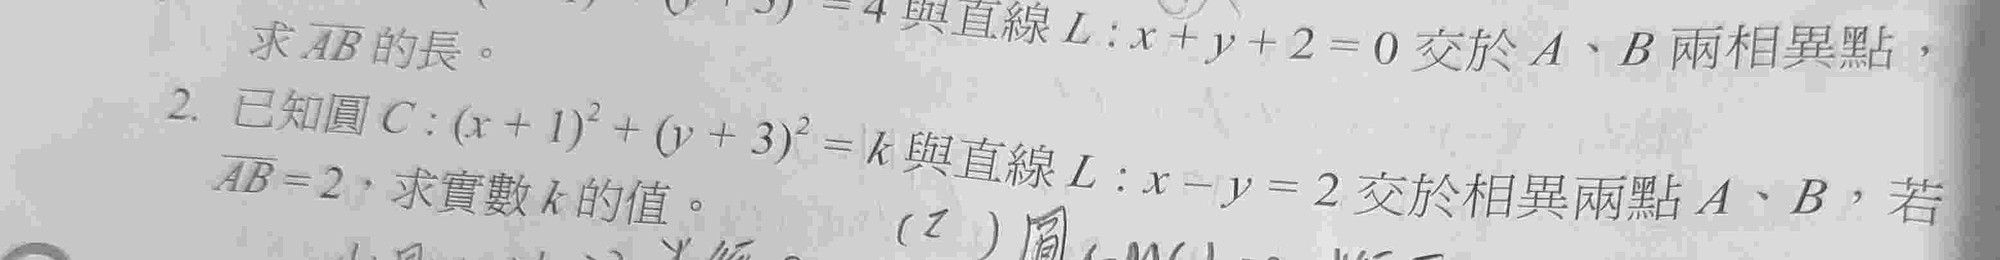 = 4 與直線 L : x + y + 2 = 0 交於 A、B 兩相異點，
求 AB 的長。
2. 已知圓 C : (x + 1)² + (y + 3)² = k 與直線 L : x − y = 2 交於相異兩點 A、B，若
AB = 2，求實數 k 的值。